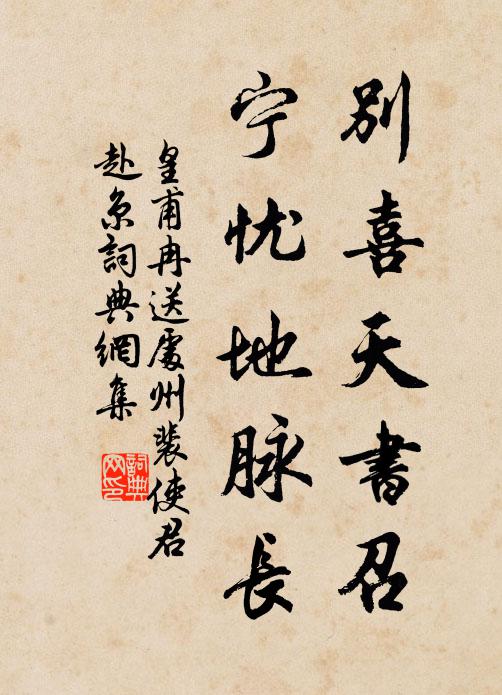 别喜天書召
宁忧地脉長
皇甫冉送處州裴使君
赴京詞典網集
詞典
网印